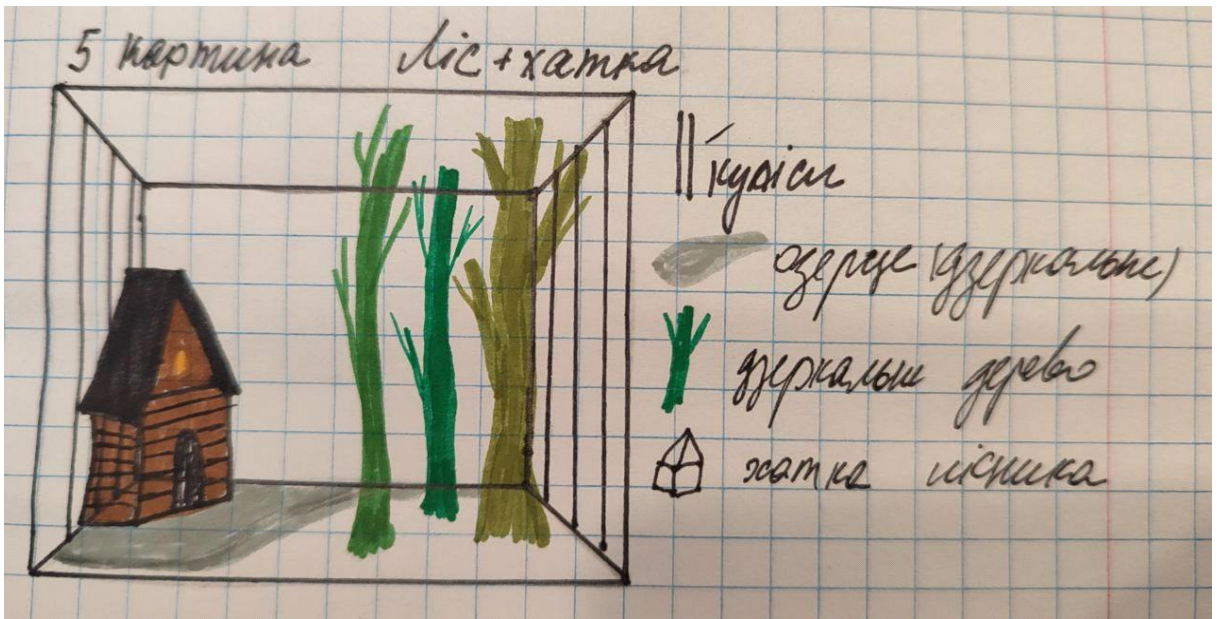 5 картина Ліс + хатка
куліси
озерце (дзеркальне)
дзеркальне дерево
хатка лісника